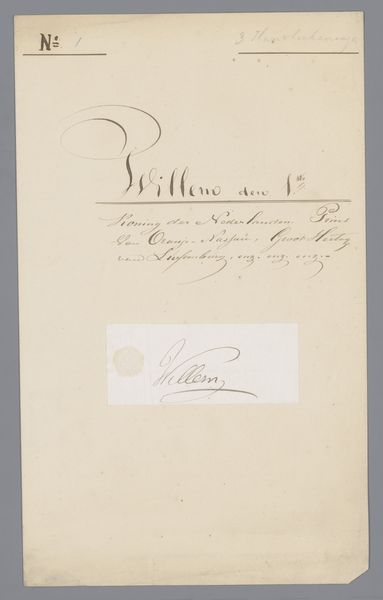 No. 1
3 Handteekeningen
Willem den 1ste
Koning der Nederlanden, Prins
van Oranje-Nassau, Groot Hertog
van Luxemburg, enz. enz. enz.-
Willem